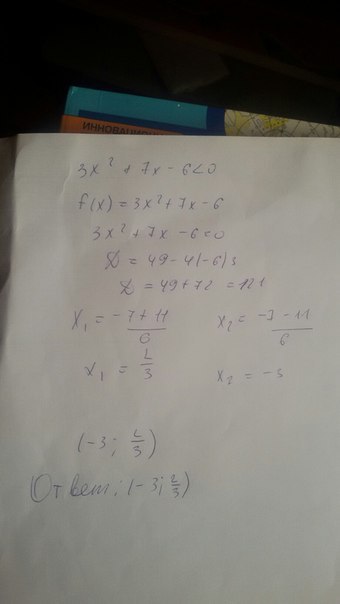 ИННОВАЦИОН
3x² + 7x - 6<0
f(x) = 3x² + 7x - 6
3x² + 7x - 6=0
D = 49 - 4(-6)3
D = 49 + 72 = 121
x₁ = (-7 + 11)/6    x₂ = (-7 - 11)/6
x₁ = 2/3    x₂ = -3
(-3; 2/3)
Ответ: (-3; 2/3)